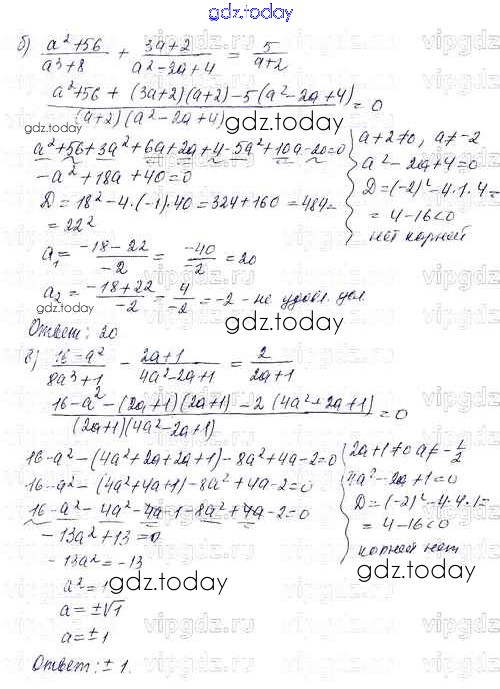 gdz.today
б) (a²+56)/(a³+8) + (3a+2)/(a²-2a+4) = 5/(a+2)
(a²+56 + (3a+2)(a+2)-5(a²-2a+4))/((a+2)(a²-2a+4)) =0
gdz.today
gdz.today
a²+56+3a²+6a+2a+4-5a²+10a-20=0
-a²+18a+40=0
D=18²-4·(-1)·40=324+160=484=
=22²
a₁= (-18-22)/-2 = -40/-2 = 20
a₂= (-18+22)/-2 = 4/-2 = -2 - не удовл. усл.
a+2≠0, a≠-2
a²-2a+4=0
D=(-2)²-4·1·4=
=4-16<0
нет корней
gdz.today
Ответ: 20
gdz.today
в) (16-a²)/(8a³+1) - (2a+1)/(4a²-2a+1) = 2/(2a+1)
(16-a²-(2a+1)(2a+1)-2(4a²-2a+1))/((2a+1)(4a²-2a+1)) =0
16-a²-(4a²+2a+2a+1)-8a²+4a-2=0
16-a²-(4a²+4a+1)-8a²+4a-2=0
16-a²-4a²-4a-1-8a²+4a-2=0
-13a²+13=0
-13a²=-13
a²=1
a=±√1
a=±1
2a+1≠0 a≠-1/2
4a²-2a+1=0
D=(-2)²-4·4·1=
=4-16<0
корней нет
gdz.today
gdz.today
Ответ: ±1.
gdz.today